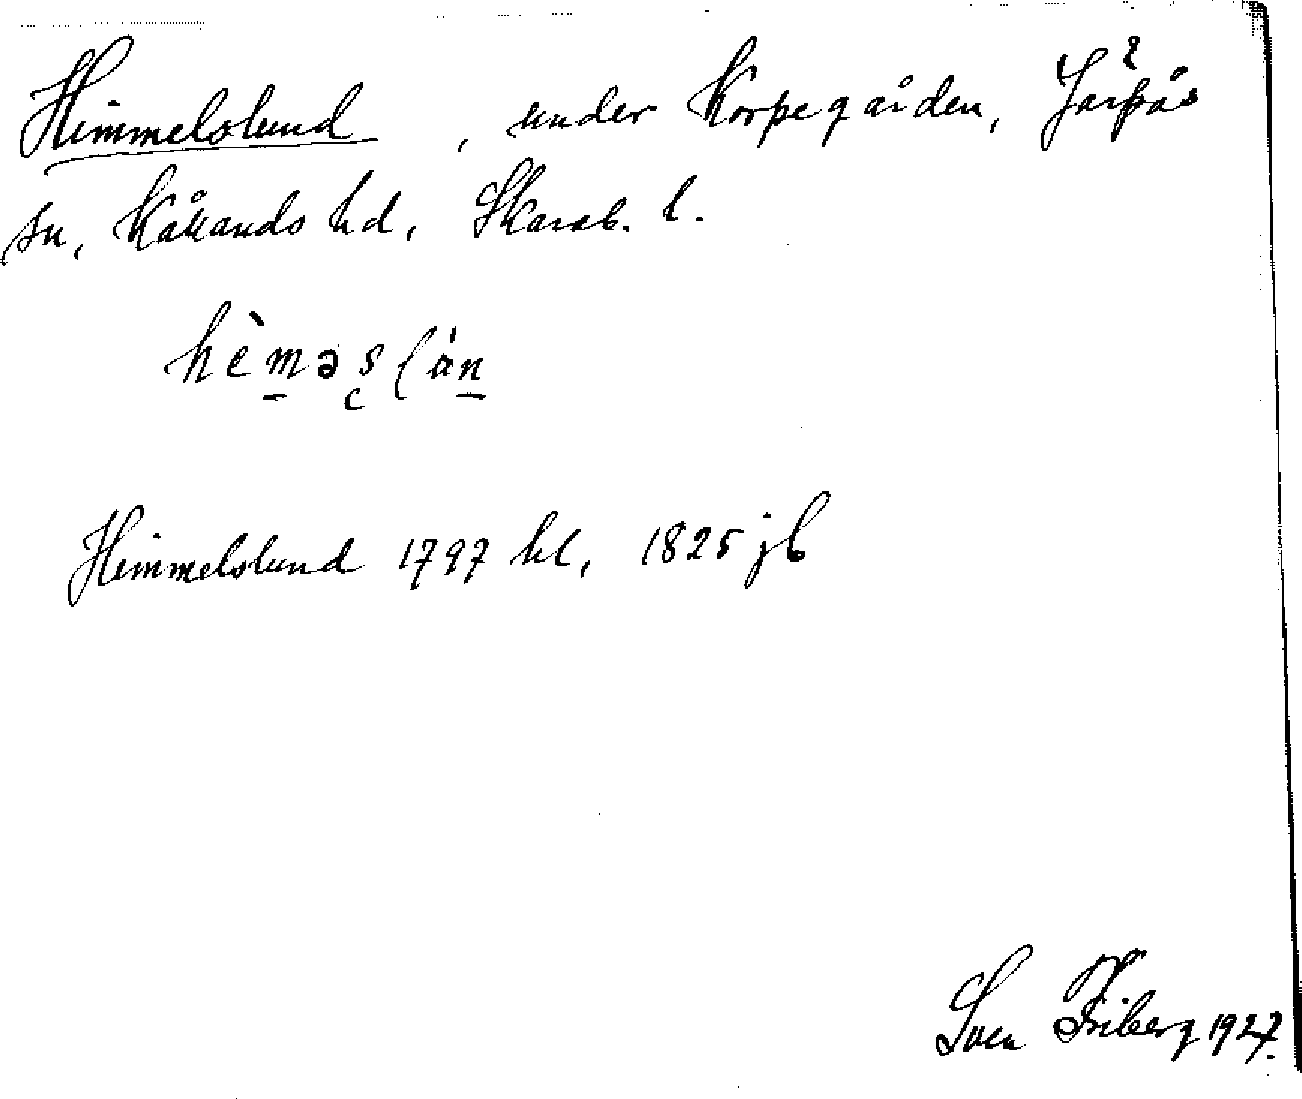 Himmelslund, under Korpegården, Järpås
sn, Kållands hd, Skarab. l.
hèməslán
Himmelslund 1797 hl, 1825 jb
Sven Friberg 1927.